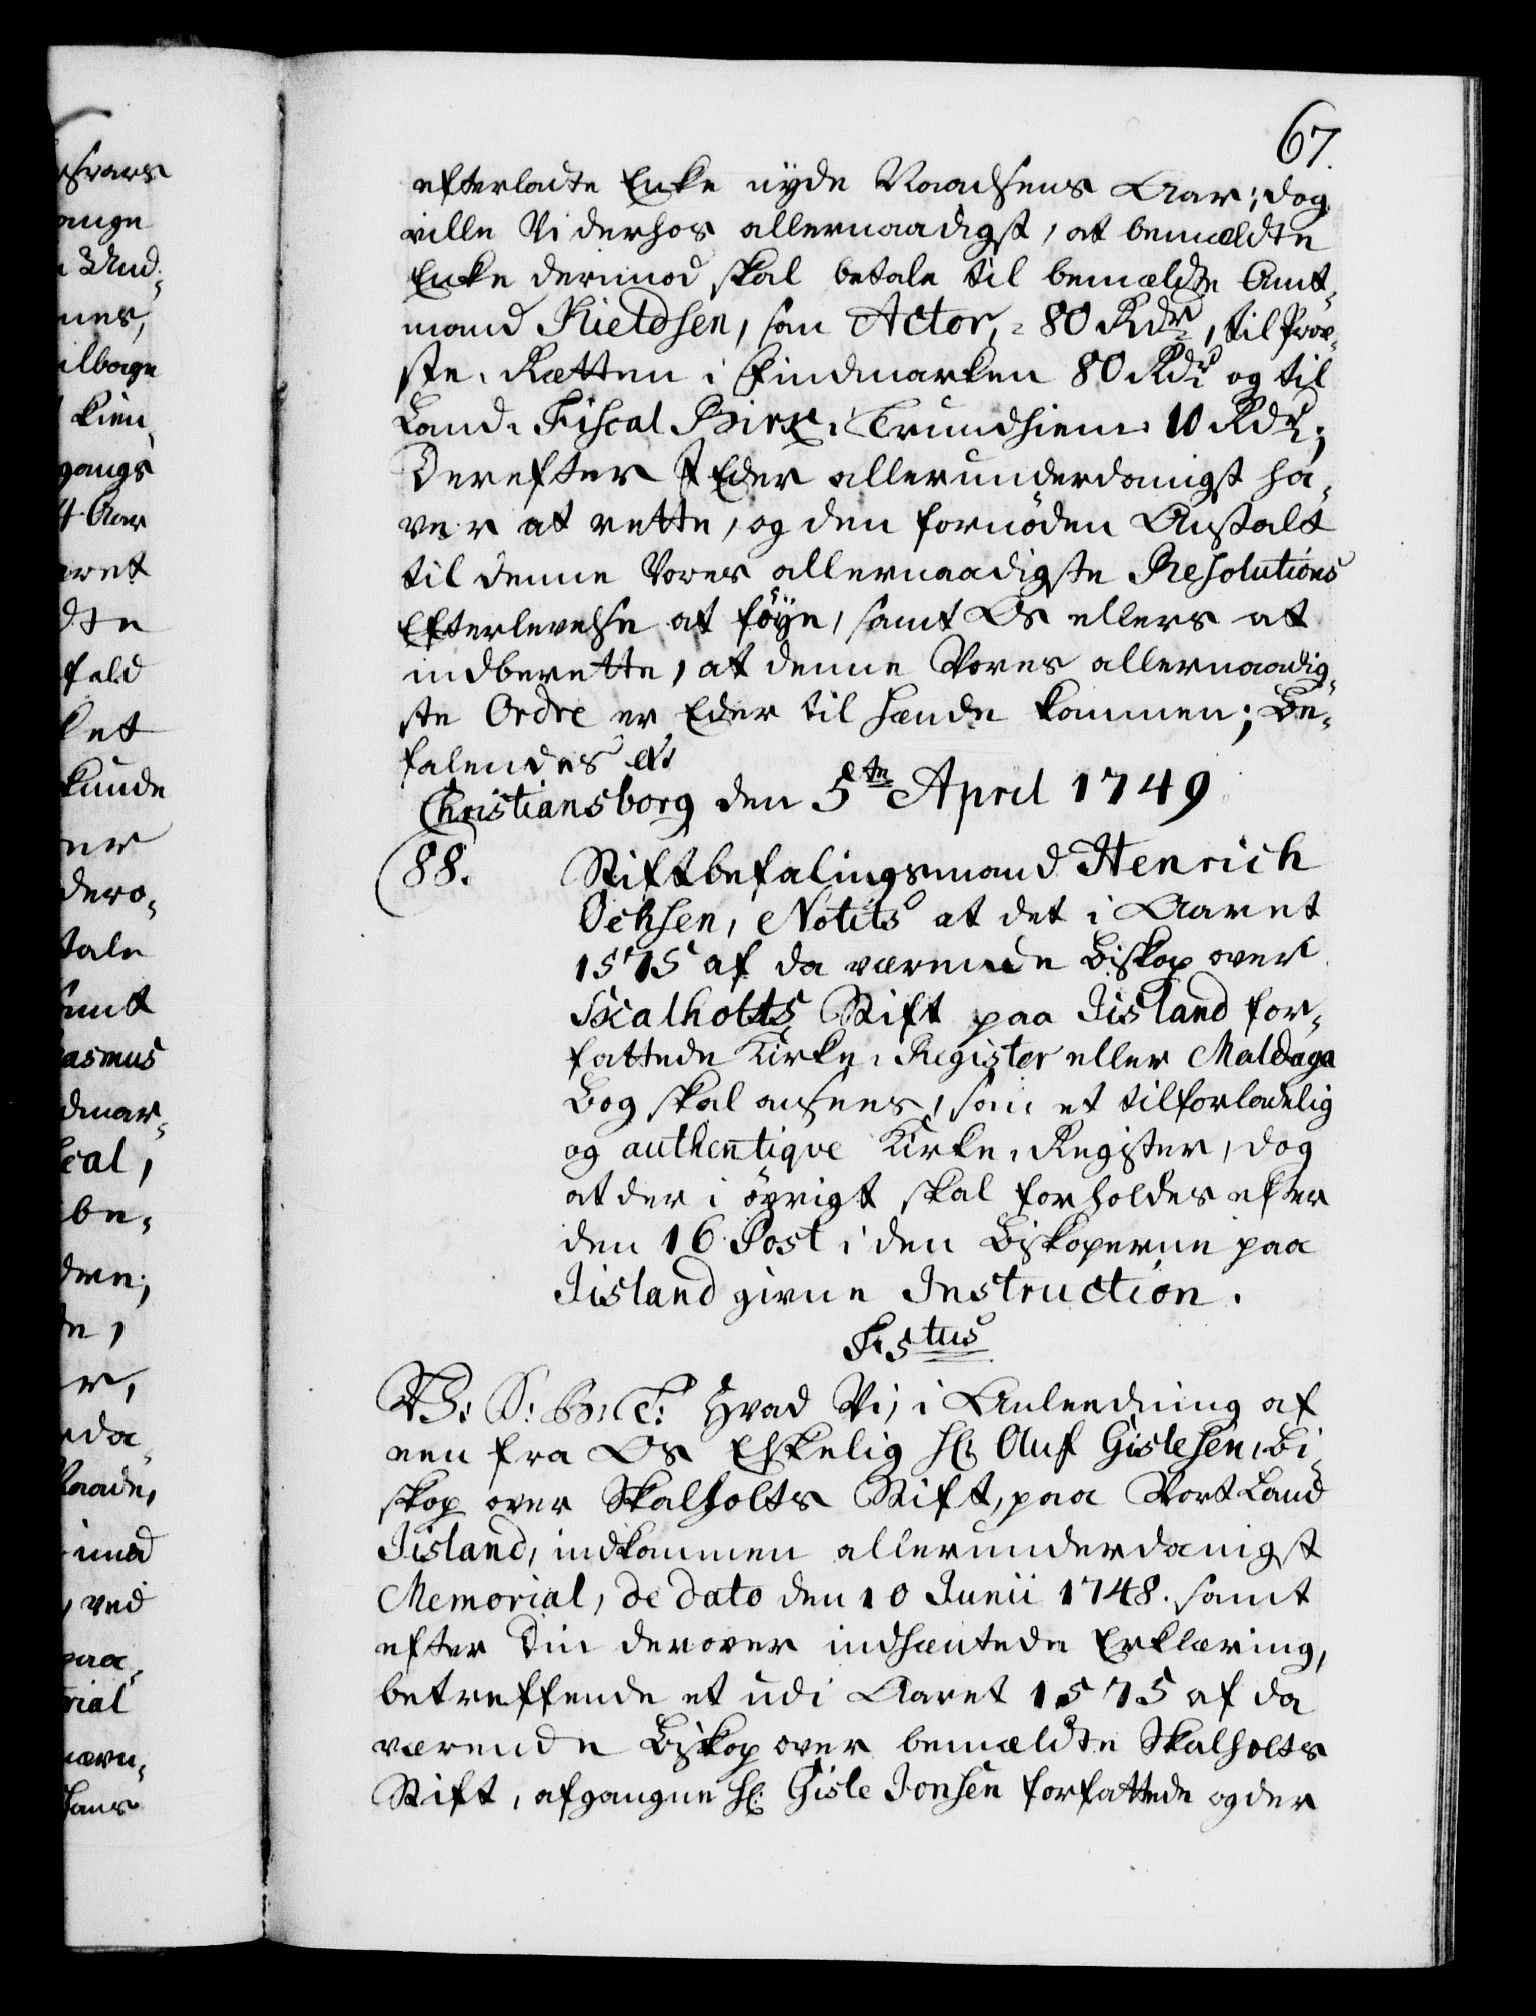 67.
efterladte Enke nyde Naadsens Aar; dog
ville Vi derhos allernaadigst, at bemældte
Enke derimod skal betale til bemældte Amt-
mand Kieldsen, som Actor, 80 Rdr, til Prov-
ste-Retten i Findmarken 80 Rdr og til
Land-Fiscal Birk i Trundhiem 10 Rdr;
Derefter I Eder allerunderdanigst ha-
ver at rette, og den fornöden Anstalt
til denne Vores allernaadigste Resolutions
Efterlevelse at föye, samt Os ellers at
indberette, at denne Vores allernaadig-
ste Ordre er Eder til Hænde kommen; Be-
falendes etc
Christiansborg den 5te April 1749
88.
Stiftbefalingsmand Henrich
Ochsen, Notits at det i Aaret
1575 af da værende Biskop over
Skalholts Stift paa Jisland for-
fattede Kirke-Register eller Maldaga
Bog skal ansees, som et tilforladelig
og authentique Kirke-Register, dog
at der i övrigt skal forholdes efter
den 16 Post i den Biskoperne paa
Jisland givne Instruction.
F. 5tus
V: S: G: T: Hvad Vi, i Anleedning af
een fra Os Elskelig Hr: Oluf Gislesen, Bi-
skop over Skalholts Stift, paa Vort Land
Jisland, indkommen allerunderdanigst
Memorial, de dato den 10 Junii 1748. samt
efter Din derover indhæntede Erklæring,
betreffende et udi Aaret 1575 af da
værende Biskop over bemældte Skalholts
Stift, afgangne Hr: Gisle Jonsen forfattede og der